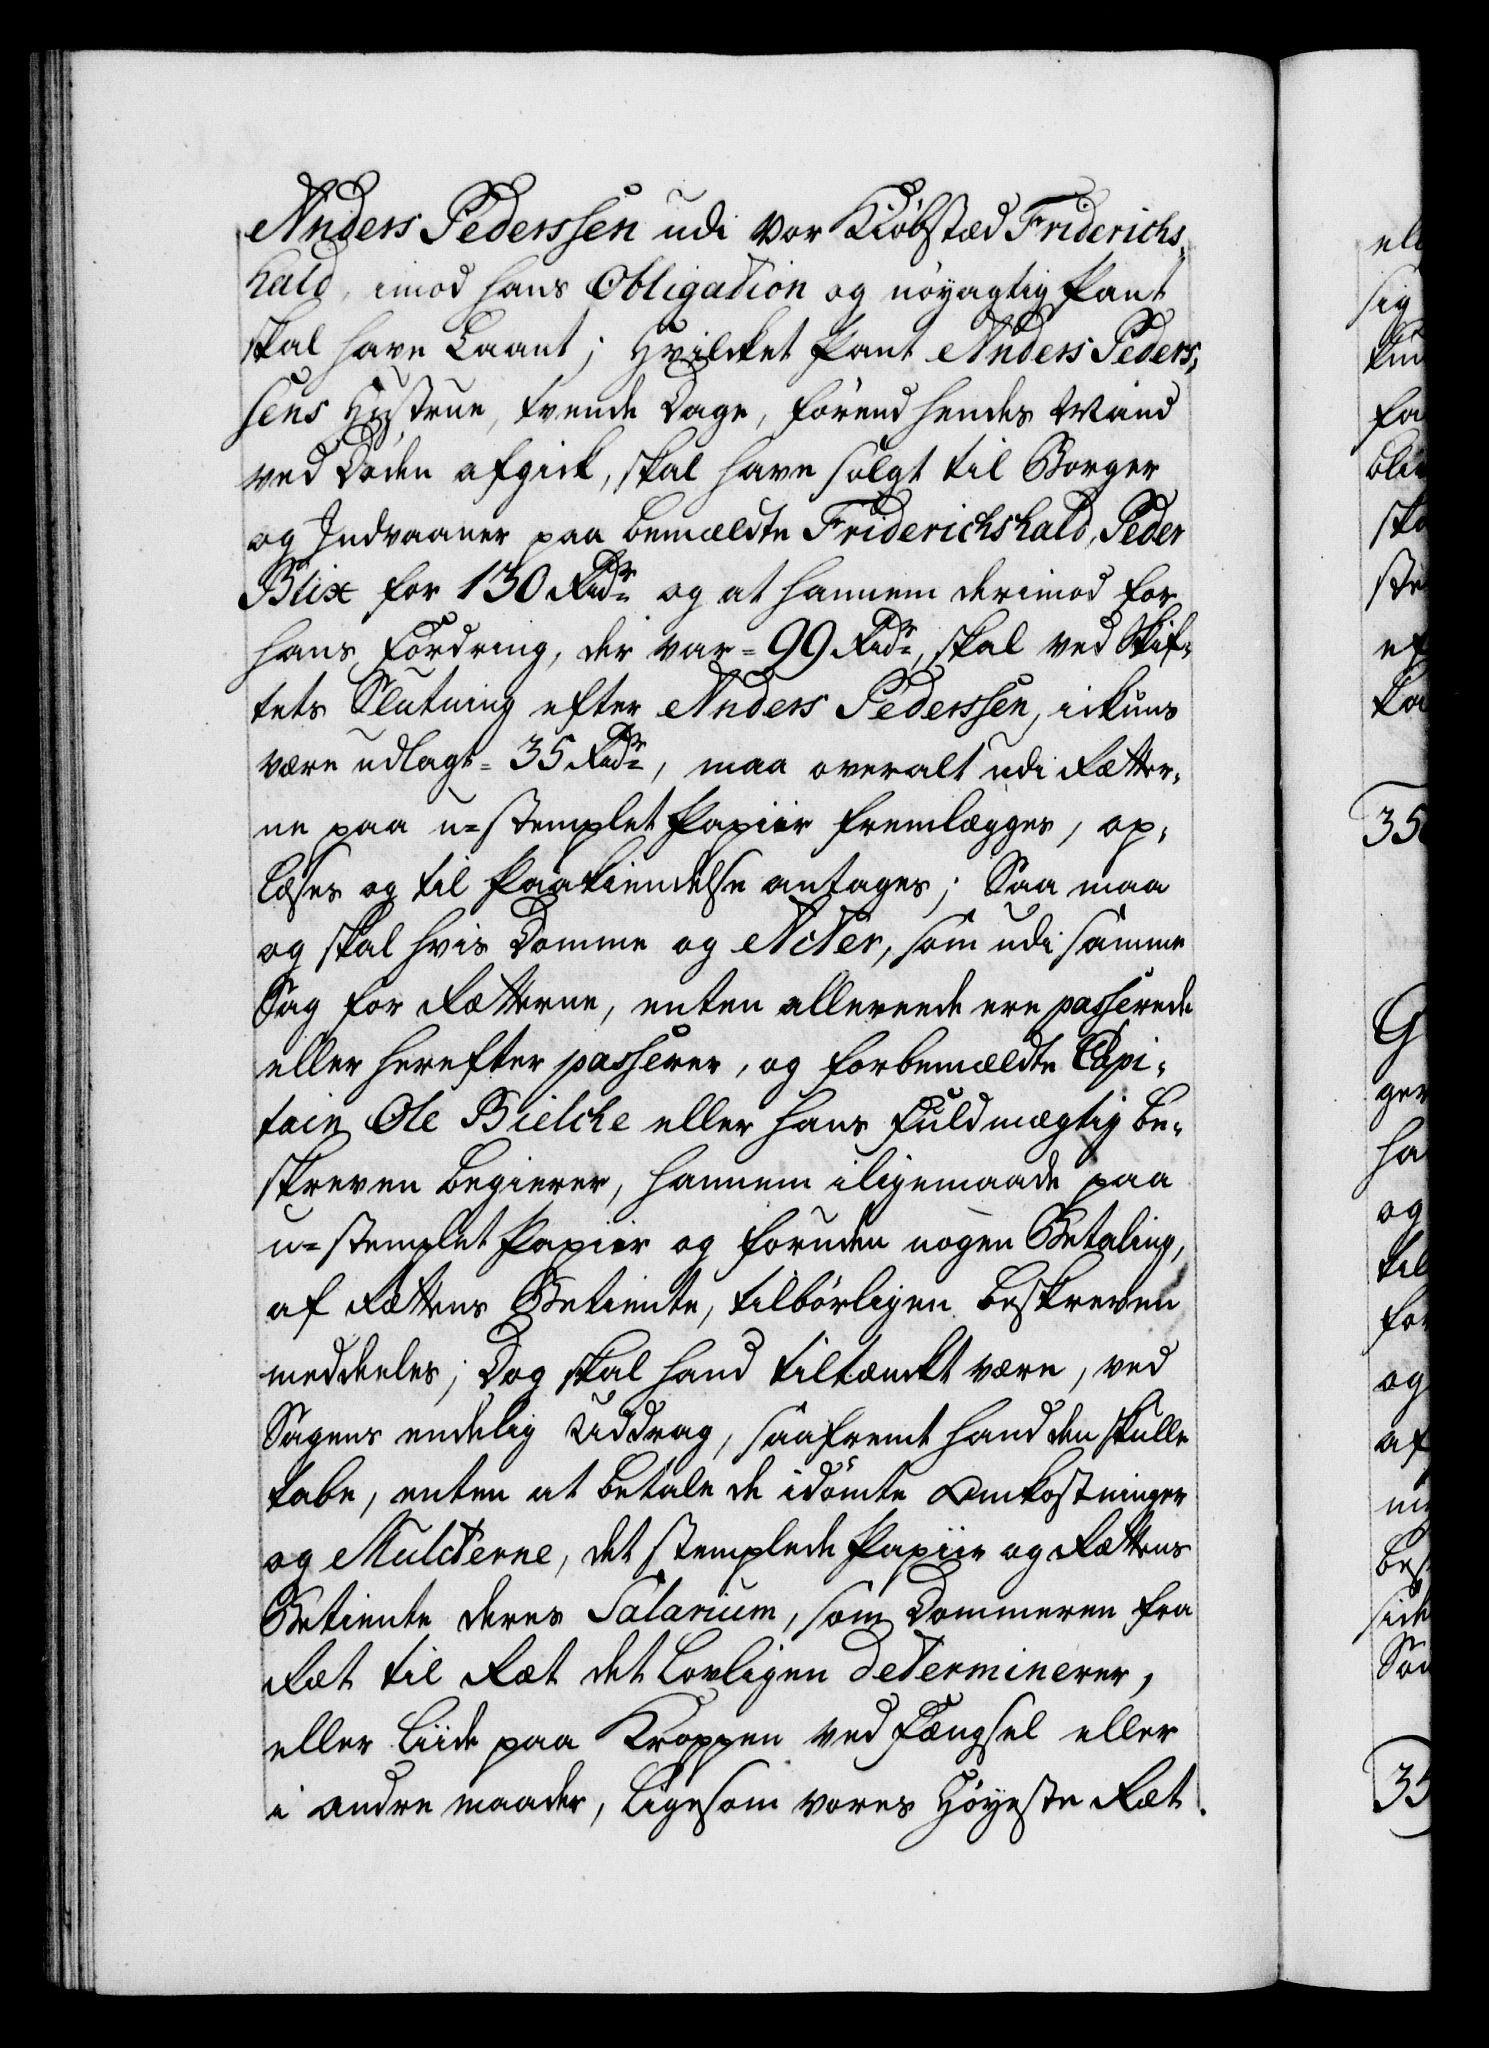 Anders Pederssen udi vor Kiøbstæd Friderichs-
hald, imod hans Obligation og nøyagtig Pant
skal have Laant; Hvilcket Pant Anders Peders-
sens Hustrue, tvende Dage, førend hendes Mand
ved Døden afgick, skal have solgt til Borger
og Indvaaner paa bemældte Friderichshald, Peder
Blix for 130 Rdr og at hannem derimod for
hans Fordring, der var = 99 Rdr, skal ved Skif-
tets Slutning efter Anders Pederssen, ickuns
være udlagt = 35 Rdr, maa overalt udi Rætter-
ne paa u-stemplet Papiir fremlægges, op-
læses og til Paakiendelse antages; Saa maa
og skal hvis Domme og Acter, som udi samme
Sag for Rætterne, enten allereede ere passerede
eller herefter passerer, og forbemældte Capi-
tain Ole Bielche eller hans Fuldmægtig be-
skreven begierer, hannem iligemaade paa
u-stemplet Papiir og foruden nogen Betaling,
af Rættens Betiente, tilbørligen beskreven
meddeeles; Dog skal hand tiltænckt være, ved
Sagens endelig Uddrag, saafremt hand den skulle
tabe, enten at betale de idømte Omkostninger
og Mulcterne, det stemplede Papiir og Rættens
Betiente deres Salarium, som Dommeren fra
Ræt til Ræt det lovligen determinerer,
eller liide paa Kroppen ved Fængsel eller
i andre maader, ligesom vores Høyeste Ræt